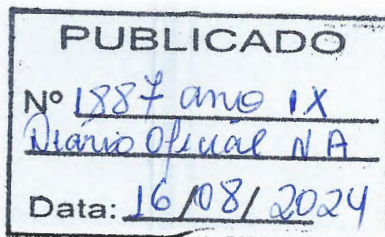 PUBLICADO
Nº 1887 ano IX
Diário Oficial NA
Data: 16/08/2024